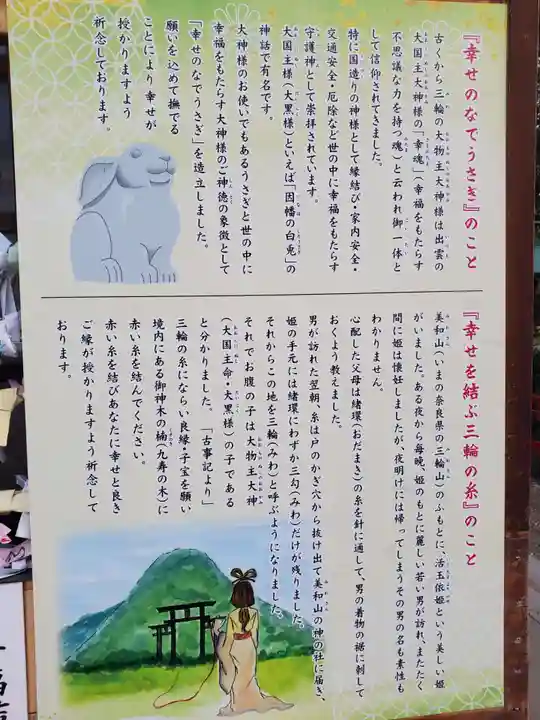 『幸せのなでうさぎ』のこと
古くから三輪の大物主大神様は出雲の
大国主大神様の「幸魂」(幸福をもたらす
不思議な力を持つ魂)と云われ御一体と
して信仰されてきました。
特に国造りの神様として縁結び・家内安全・
交通安全・厄除など世の中に幸福をもたらす
守護神として崇拝されています。
大国主様(大黒様)といえば「因幡の白兎」の
神話で有名です。
大神様のお使いでもあるうさぎと世の中に
幸福をもたらす大神様のご神徳の象徴として
「幸せのなでうさぎ」を造立しました。
願いを込めて撫でる
ことにより幸せが
授かりますよう
祈念しております。
『幸せを結ぶ三輪の糸』のこと
美和山(いまの奈良県の三輪山)のふもとに、活玉依姫という美しい姫
がいました。ある夜から毎晩、姫のもとに麗しい若い男が訪れ、またたく
間に姫は懐妊しましたが、夜明けには帰ってしまうその男の名も素性も
わかりません。
心配した父母は緒環(おだまき)の糸を針に通して、男の着物の裾に刺して
おくよう教えました。
男が訪れた翌朝、糸は戸のかぎ穴から抜け出て美和山の神の社に届き、
姫の手元には緒環にわずか三勾(みわ)だけが残りました。
それからこの地を三輪(みわ)と呼ぶようになりました。
それでお腹の子は大物主大神
(大国主命・大黒様)の子である
と分かりました。「古事記より」
三輪の糸にならい良縁・子宝を願い
境内にある御神木の楠(九寿の木)に
赤い糸を結んでください。
赤い糸を結びあなたに幸せと良き
ご縁が授かりますよう祈念して
おります。